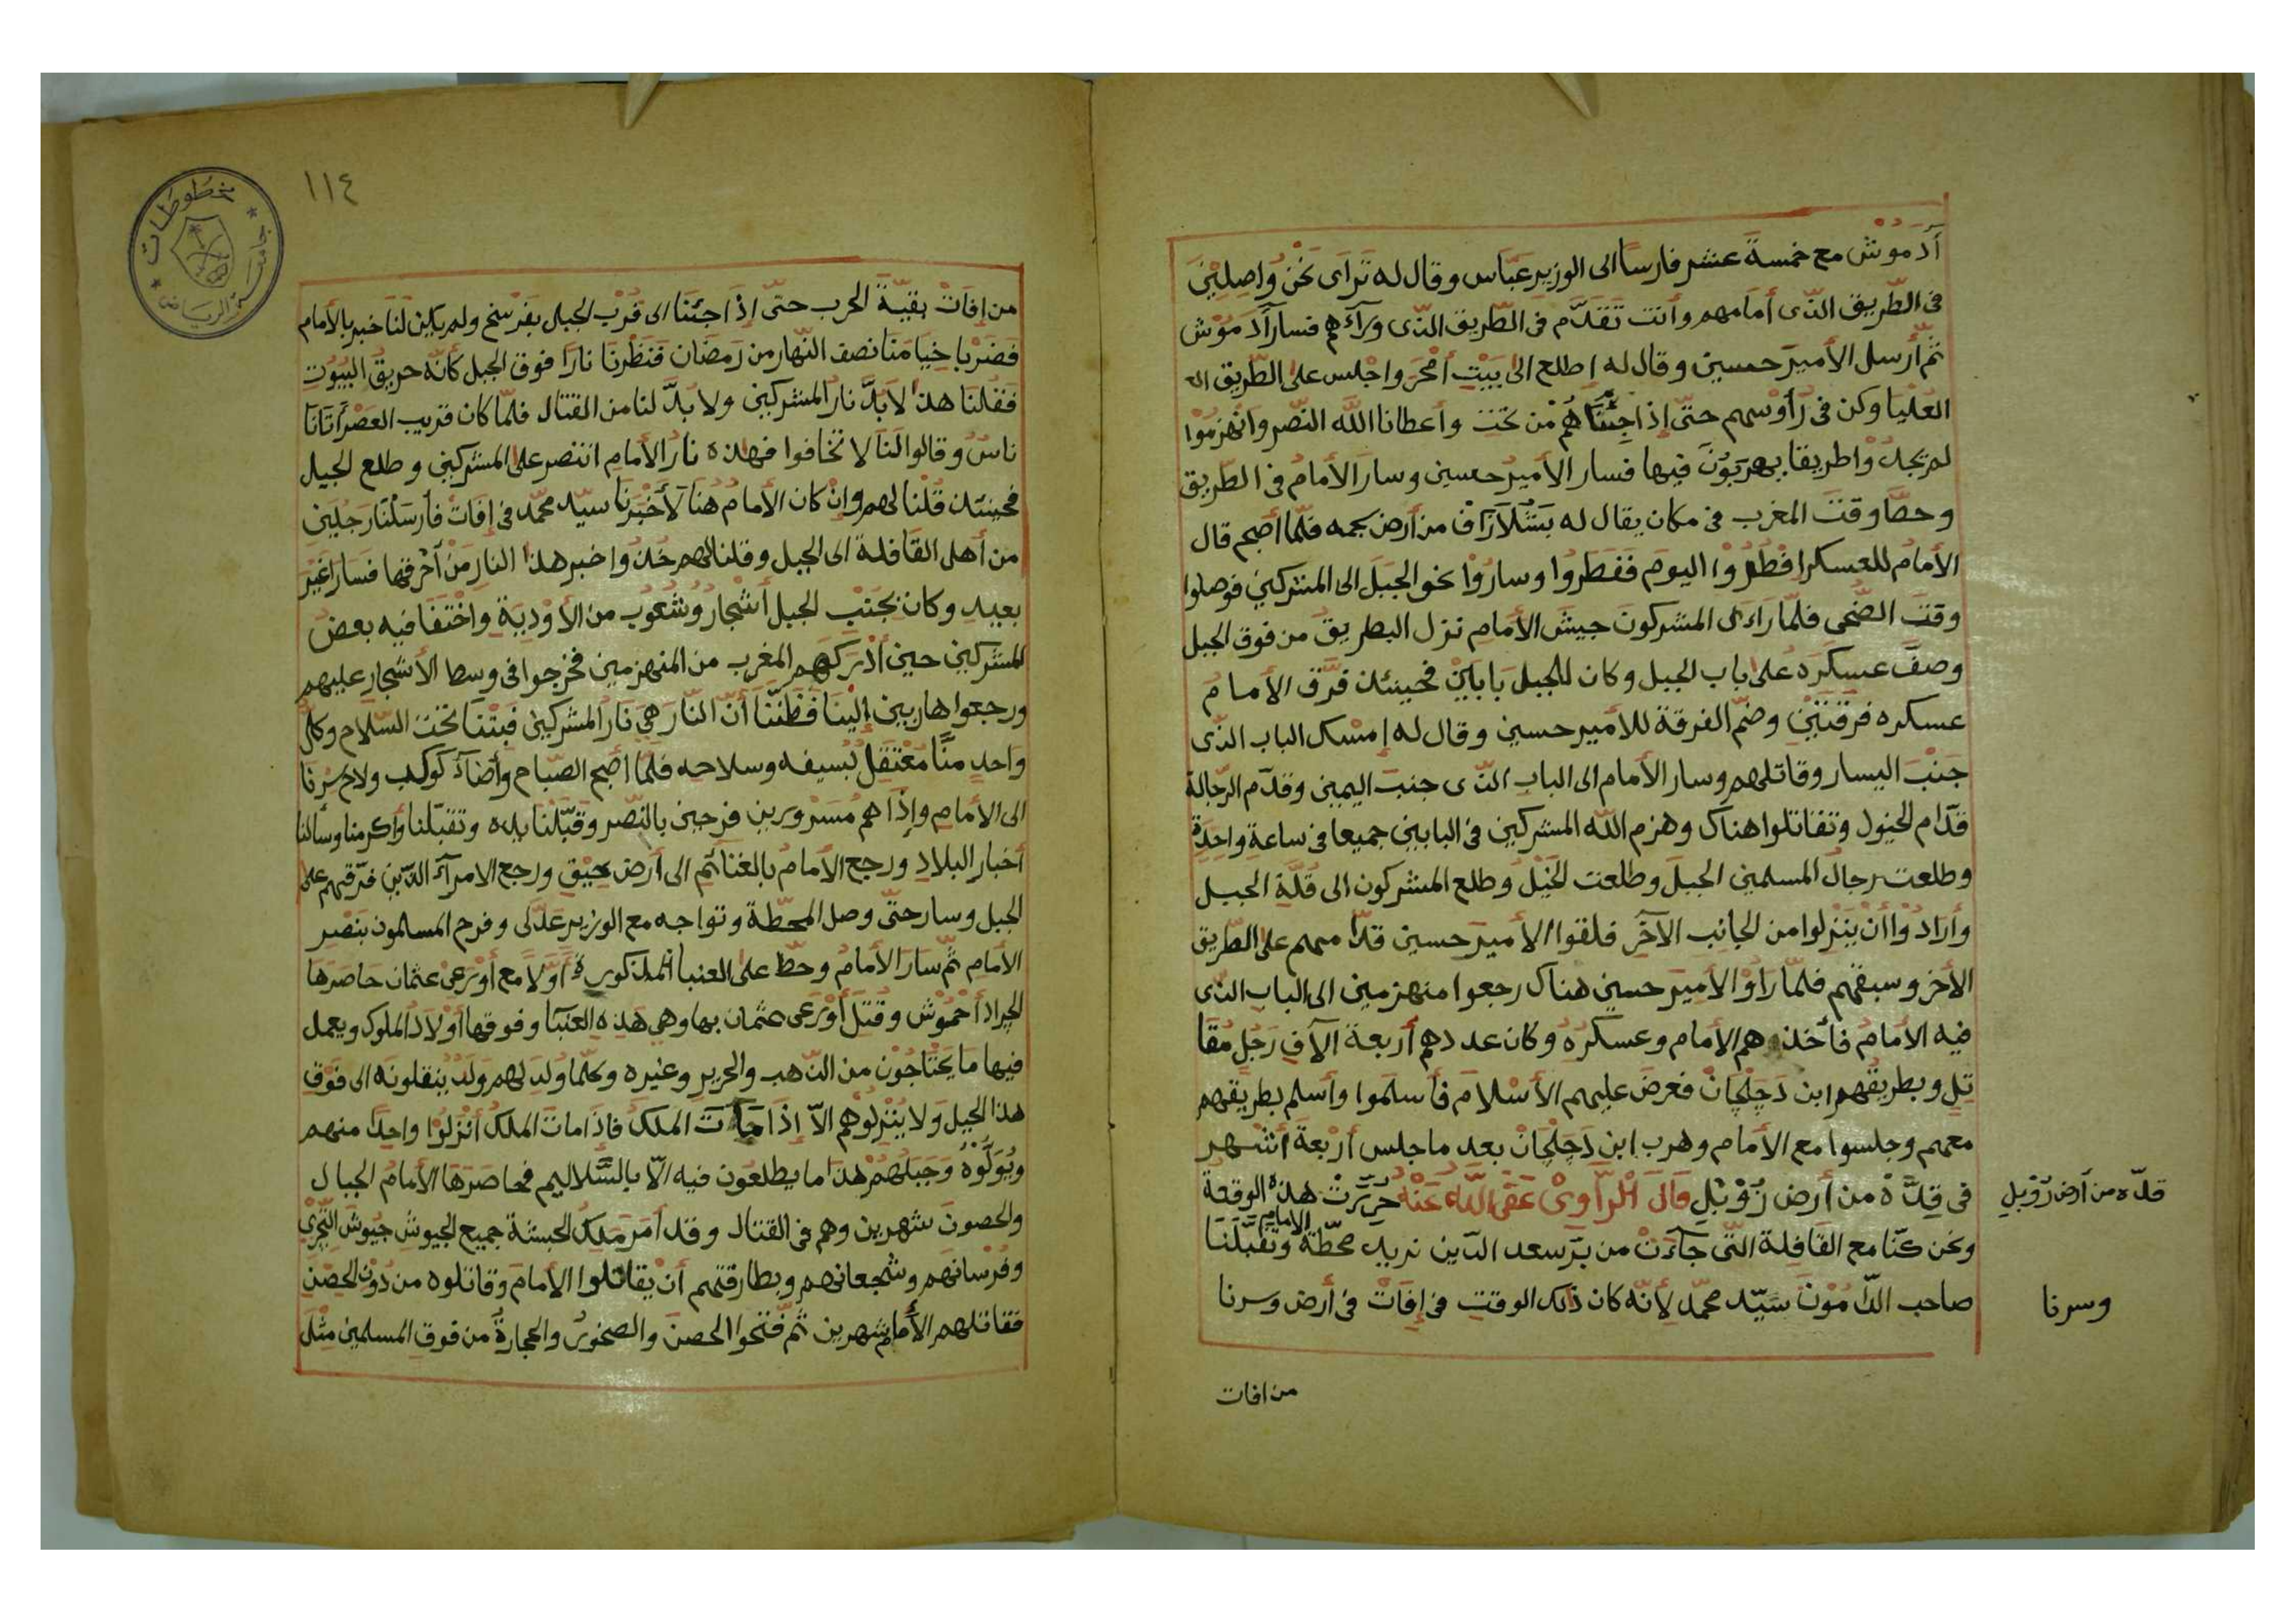 أدموش مع خمسة عشر فارسا الى الوزير عباس وقال له تراى نحن واصلين
فى الطريق الذى أمامهم وأنت تقدم فى الطريق الذى ورآءهم فسار أدموش
ثم أرسل الأمير حسين وقال له إطلع الى بيت أمحر واجلس على الطريق
العليا وكن فى رأوسهم حتى إذا جئناهم من تحت وأعطانا الله النصر وانهزموا
لم يجدوا طريقا يهربون فيها فسار الأمير حسين وسار الأمام فى الطريق
وحطا وقت المغرب فى مكان يقال له بشلاراف من أرض فلما أصبح قال
الأمام للعسكر افطروا اليوم ففطروا وساروا نحو الجبل الى المشركين فوصلوا
وقت الضحى فلما راءى المشركون جيش الأمام نزل البطريق من فوق الجبل
وصف عسكره على باب الجبل وكان للجبل بابين فحينئذ فرق الأمام
عسكره فرقتين وضم الفرقة للأمير حسين وقال له إمسك الباب الذى
جنب اليسار وقاتلهم وسار الأمام الى الباب الذى جنب اليمين وقدم الرجالة
قدام الخيول وتقاتلوا هناك وهزم الله المشركين فى البابين جميعا فى ساعة واحدة
وطلعت رجال المسلمين الجبل وطلعت الخيل وطلع المشركون الى قلة الجبل
وأرادوا أن ينزلوا من الجانب الآخر فلقوا الأمير حسين قدامهم على الطريق
الأخر وسبقهم فلما رأوا الأمير حسين هناك رجعوا منهزمين الى الباب الذى
فيه الامام فأخذهم الأمام وعسكره وكان عددهم أربعة الآف رجل مقا
تل وبطريقهم ابن دجلجان فعرض عليهم الأسلام فأسلموا وأسلم بطريقهم
معهم وجلسوا مع الأمام وهرب ابن دجلجان بعد ما جلس أربعة أشهر
فى قدة من أرض زوبل قال الراوى عفى الله عنه حررت هذه الوقعة
قدة من أرض زوبل
ونحن كنا مع القافلة التى جآءت من بر سعد الدين نريد محطة الامام وتقبلنا
صاحب الدمون سيد محمد لأنه كان ذلك الوقت فى إفات فى أرض وسرنا
وسرنا
من افات
١١٤
من إفات بقية الحرب حتى إذا جئنا الى قرب الجبل بفرسخ ولم يكن لنا خبر بالأمام
فضربنا خيامنا نصف النهار من رمضان فنظرنا نارا فوق الجبل كأنه حريق البيوت
فقلنا هذا لابد نار المشركين ولا بد لنا من القتال فلما كان قريب العصر أتانا
ناس وقالوا لنا لا تخافوا فهذه نار الأمام انتصر على المشركين وطلع الجبل
فحينئذ قلنا لهم وإن كان الأمام هنا لأخبرنا سيد محمد فى إفات فأرسلنا رجلين
من أهل القافلة الى الجبل وقلنا لهم خذوا خبر هذا النار من أحرقها فسارا غير
بعيد وكان بجنب الجبل أشجار وشعوب من الأودية واختفا فيه بعض
المشركين حين أدركهم المغرب من المنهزمين فخرجوا فى وسط الأشجار عليهم
ورجعوا هاربين إلينا فظننا أن النار هي نار المشركين فبتنا تحت السلام وكل
واحد منا معتقل بسيفه وسلاحه فلما أصبح الصباح وأضآء كوكب ولاح سرنا
الى الأمام وإذا هم مسرورين فرحين بالنصر وقبلنا يده وتقبلنا وأكرمنا وسألنا
أخبار البلاد ورجع الأمام بالغنائم الى أرض ورجع الامرآء الذين فرقهم على
الجبل وسار حتى وصل المحطة وتواجه مع الوزير عدلى وفرح المسلمون بنصر
الأمام ثم سار الأمام وحط على العنبا المذكور أولا مع أورعى عثمان حاصرها
الجراد أحموش وقتل أورعى عثمان بها وهي هذه العنبا وفوقها أولاد الملوك ويعمل
فيها ما يحتاجون من الذهب والحرير وغيره وكلما ولد لهم ولد ينقلونه الى فوق
هذا الجبل ولا ينزلوهم الا إذا مات الملك فاذا مات الملك أنزلوا واحدا منهم
ويولوه وجبلهم هذا ما يطلعون فيه الا بالسلاليم فحاصرها الأمام الجبال
والحصون شهرين وهم فى القتال وقد أمر ملك الحبشة جميع الجيوش جيوش التجرى
وفرسانهم وشجعانهم وبطارقتهم أن يقاتلوا الأمام وقاتلوه من دون الحصن
فقاتلهم الأمام شهرين ثم فتحوا الحصن والصخور والحجارة من فوق المسلمين مثل
مخطوطات
جامعة الرياض